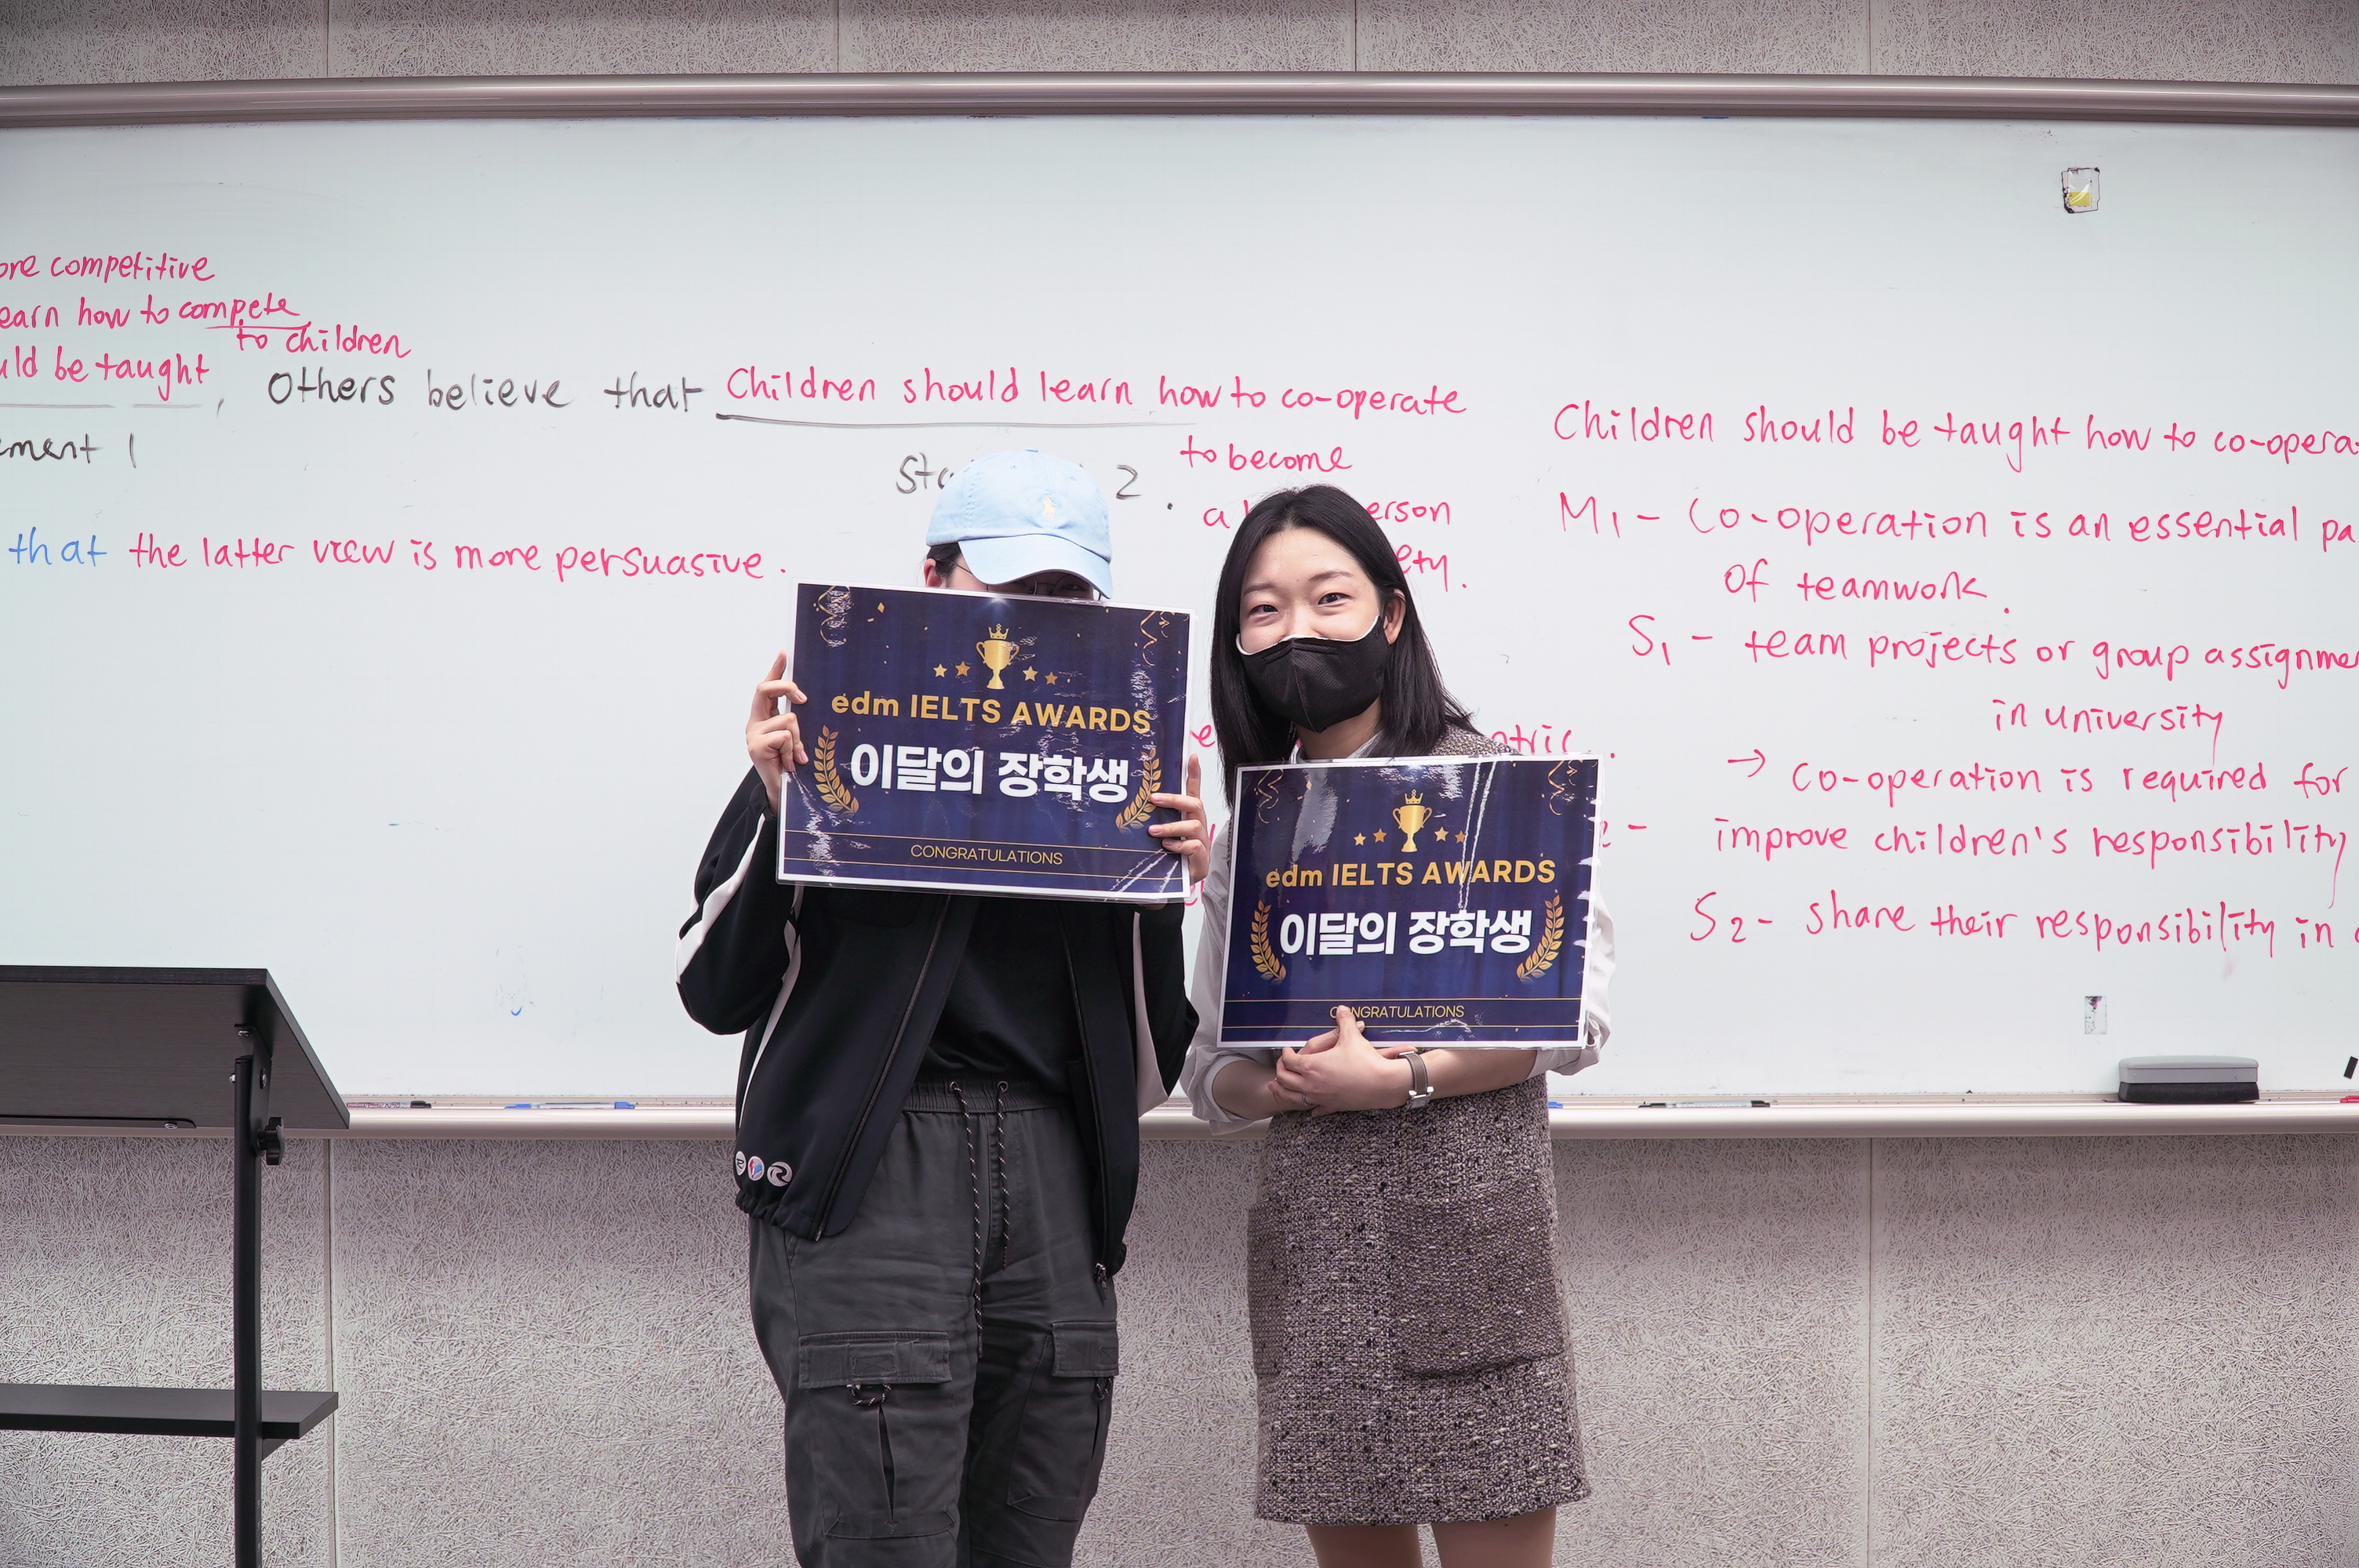 competitive
how to compete
to children
be taught, Others believe that Children should learn how to co-operate
1
2. to become
a
that the latter view is more persuasive.
Children should be taught how to
M1 - Co-operation is an essential
of teamwork.
S1 - team projects or group
in university
→ co-operation is required for
- improve children's responsibility
S2 - share their responsibility in
edm IELTS AWARDS
이달의 장학생
CONGRATULATIONS
edm IELTS AWARDS
이달의 장학생
CONGRATULATIONS